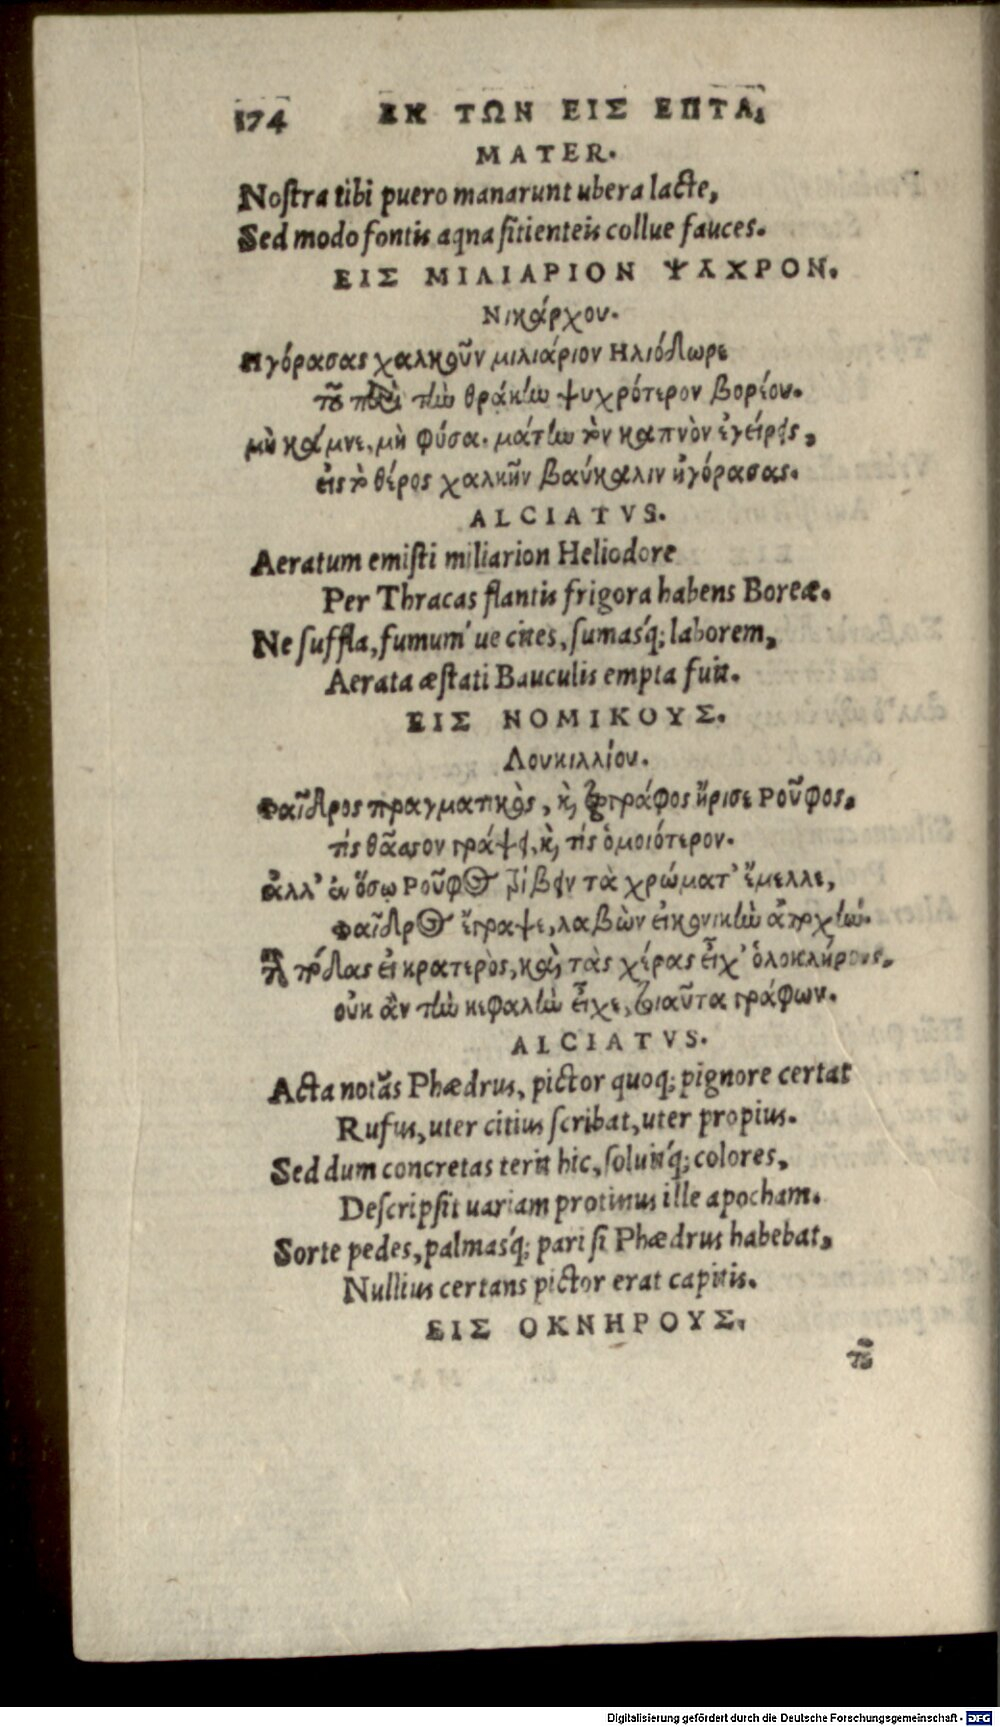 174 ΕΚ ΤΩΝ ΕΙΣ ΕΠΤΑ,
MATER.
Noſtra tibi puero manarunt ubera lacte,
Sed modo fontis aqua ſitienteis collue fauces.
ΕΙΣ ΜΙΛΙΑΡΙΟΝ ΨΑΧΡΟΝ.
Νικάρχου.
Ηγόρασας χαλκοῦν μιλιάριον Ηλιόδωρε
τοῦ περὶ τὴν θράκην ψυχρότερον βορέου.
μὴ κάμνε, μὴ φύσα. μάτην τὸν καπνὸν ἐγείρεις,
εἰς τὸ θέρος χαλκῆν βαύκαλιν ἠγόρασας.
ALCIATVS.
Aeratum emiſti miliarion Heliodore
Per Thracas flantis frigora habens Boreæ.
Ne ſuffla, fumum' ue cites, ſumasq́; laborem,
Aerata æſtati Bauculis empta fuit.
ΕΙΣ ΝΟΜΙΚΟΥΣ.
Λουκιλλίου.
Φαῖδρος πραγματικὸς, καὶ ζωγράφος ἤρισε Ροῦφος.
τίς θᾶσσον γράψει, καὶ τίς ὁμοιότερον.
ἀλλ' ἐν ὅσῳ Ροῦφος τρίβειν τὰ χρώματ' ἔμελλε,
Φαῖδρος ἔγραψε, λαβὼν εἰκονικὴν ἀποχήν.
πόδας εἰ κρατερὸς, καὶ τὰς χέρας εἶχ' ὁλοκλήρους,
οὐκ ἂν τὴν κεφαλὴν εἶχε, τοιαῦτα γράφων.
ALCIATVS.
Acta notãs Phædrus, pictor quoq; pignore certat
Rufus, uter citius ſcribat, uter propius.
Sed dum concretas terit hic, ſoluitq́; colores,
Deſcripſit uariam protinus ille apocham.
Sorte pedes, palmasq́; pari ſi Phædrus habebat,
Nullius certans pictor erat capitis.
ΕΙΣ ΟΚΝΗΡΟΥΣ.
τοῦ
Digitalisierung gefördert durch die Deutsche Forschungsgemeinschaft - DFG